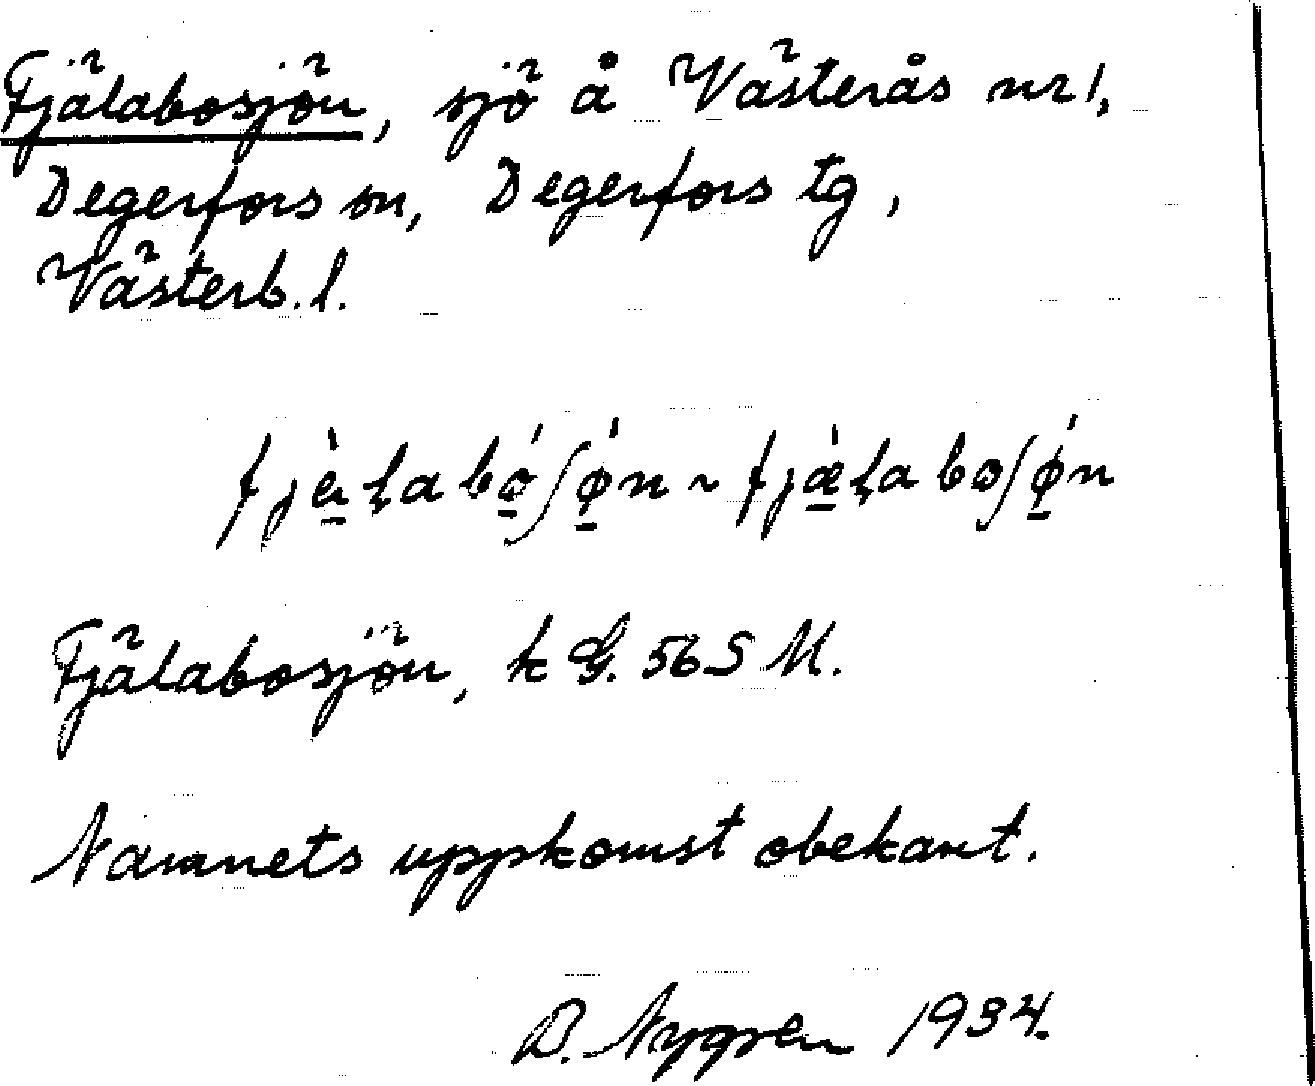 Fjälabosjön, sjö å Västerås nr 1,
Degerfors sn, Degerfors tg,
Västerb. l.
fjæ̀ḷabǿʃǿn ~ fjæ̀ḷaboʃǿn
Fjälabosjön, k G. 56 S M.
Namnets uppkomst obekant.
D. Nygren 1934.